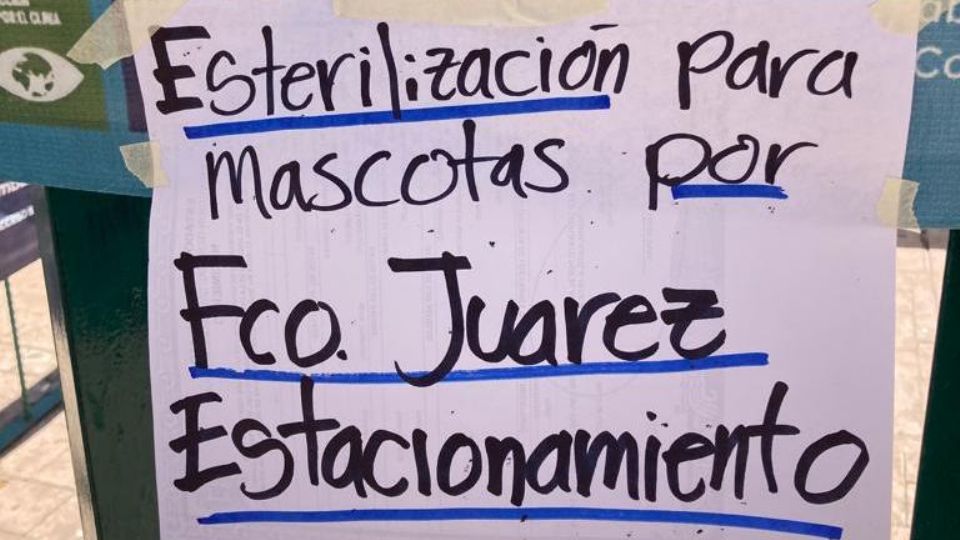 POR EL CLIMA
Esterilización para
mascotas por
Fco. Juarez
Estacionamiento